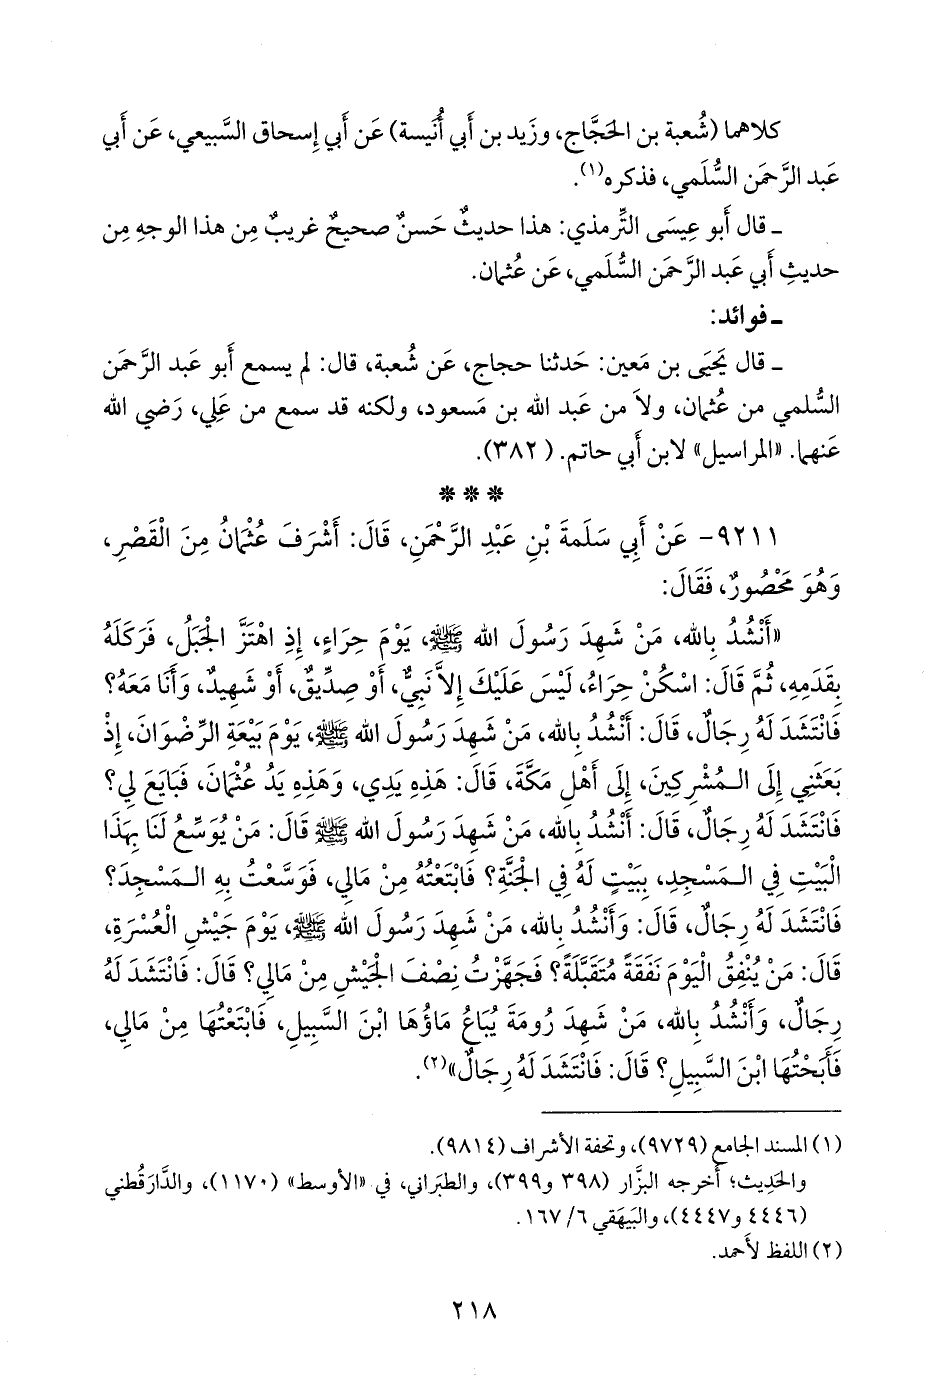 كلاهما (شُعبة بن الحَجَّاج، وزَيد بن أَبي أُنَيسة) عَن أَبي إِسحاق السَّبيعي، عَن أَبي
عَبد الرَّحمَن السُّلَمي، فذكره(١).
ـ قال أَبو عِيسَى التِّرمذي: هذا حديثٌ حَسنٌ صحيحٌ غريبٌ مِن هذا الوجهِ مِن
حديثِ أَبي عَبد الرَّحمَن السُّلَمي، عَن عُثمان.
ـ فوائد:
ـ قال يَحيَى بن مَعين: حَدثنا حجاج، عَن شُعبة، قال: لم يسمع أَبو عَبد الرَّحمَن
السُّلمي من عُثمان، ولاَ من عَبد الله بن مَسعود، ولكنه قد سمع من عَلِي، رَضي الله
عَنهما. «المراسيل» لابن أَبي حاتم. (٣٨٢).
***
٩٢١١- عَنْ أَبِي سَلَمَةَ بْنِ عَبْدِ الرَّحْمَنِ، قَالَ: أَشْرَفَ عُثْمَانُ مِنَ الْقَصْرِ،
وَهُوَ مَحْصُورٌ، فَقَالَ:
«أَنْشُدُ بِالله، مَنْ شَهِدَ رَسُولَ الله ﷺ، يَوْمَ حِرَاءٍ، إِذِ اهْتَزَّ الْجَبَلُ، فَرَكَلَهُ
بِقَدَمِهِ، ثُمَّ قَالَ: اسْكُنْ حِرَاءُ، لَيْسَ عَلَيْكَ إِلاَّ نَبِيٌّ، أَوْ صِدِّيقٌ، أَوْ شَهِيدٌ، وَأَنَا مَعَهُ؟
فَانْتَشَدَ لَهُ رِجَالٌ، قَالَ: أَنْشُدُ بِالله، مَنْ شَهِدَ رَسُولَ الله ﷺ، يَوْمَ بَيْعَةِ الرِّضْوَانَ، إِذْ
بَعَثَنِي إِلَى الْمُشْرِكِينَ، إِلَى أَهْلِ مَكَّةَ، قَالَ: هَذِهِ يَدِي، وَهَذِهِ يَدُ عُثْمَانَ، فَبَايَعَ لِي؟
فَانْتَشَدَ لَهُ رِجَالٌ، قَالَ: أَنْشُدُ بِالله، مَنْ شَهِدَ رَسُولَ الله ﷺ قَالَ: مَنْ يُوَسِّعُ لَنَا بِهَذَا
الْبَيْتِ فِي الْمَسْجِدِ، بِبَيْتٍ لَهُ فِي الْجَنَّةِ؟ فَابْتَعْتُهُ مِنْ مَالِي، فَوَسَّعْتُ بِهِ الْمَسْجِدَ؟
فَانْتَشَدَ لَهُ رِجَالٌ، قَالَ: وَأَنْشُدُ بِالله، مَنْ شَهِدَ رَسُولَ الله ﷺ، يَوْمَ جَيْشِ الْعُسْرَةِ،
قَالَ: مَنْ يُنْفِقُ الْيَوْمَ نَفَقَةً مُتَقَبَّلَةً؟ فَجَهَّزْتُ نِصْفَ الْجَيْشِ مِنْ مَالِي؟ قَالَ: فَانْتَشَدَ لَهُ
رِجَالٌ، وَأَنْشُدُ بِالله، مَنْ شَهِدَ رُومَةَ يُبَاعُ مَاؤُهَا ابْنَ السَّبِيلِ، فَابْتَعْتُهَا مِنْ مَالِي،
فَأَبَحْتُهَا ابْنَ السَّبِيلِ؟ قَالَ: فَانْتَشَدَ لَهُ رِجَالٌ»(٢).
(١) المسند الجامع (٩٧٢٩)، وتحفة الأَشراف (٩٨١٤).
والحَدِيث؛ أَخرجه البزَّار (٣٩٨ و٣٩٩)، والطبَراني، في «الأَوسط» (١١٧٠)، والدَّارَقُطني
(٤٤٤٦ و٤٤٤٧)، والبَيهَقي ٦/ ١٦٧.
(٢) اللفظ لأَحمد.
٢١٨